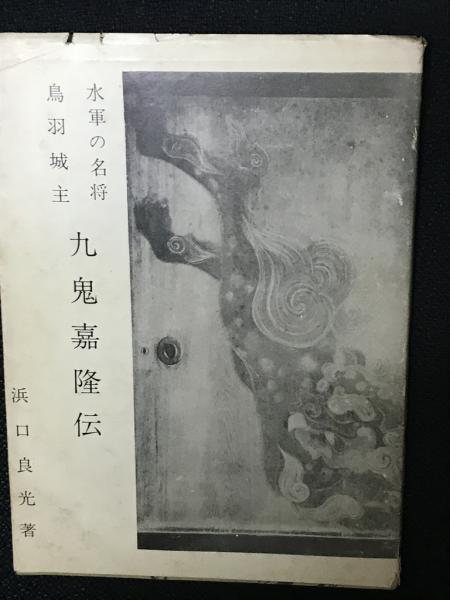 水軍の名将
鳥羽城主
九鬼嘉隆伝
浜口良光著